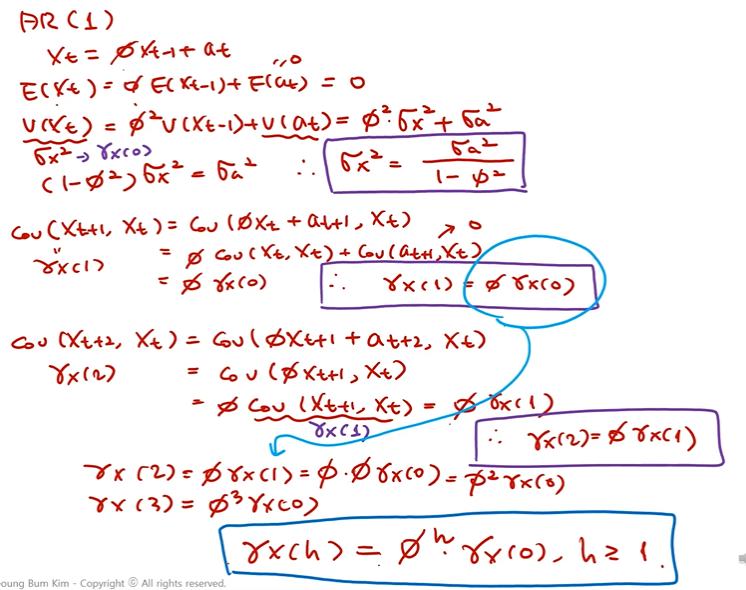 AR(1)
Xt = ϕXt-1 + at
E(Xt) = ϕ E(Xt-1) + E(at) = 0
"0
V(Xt) = ϕ²V(Xt-1) + V(at) = ϕ²·σx² + σa²
σx² → γx(0)
(1-ϕ²)σx² = σa² ∴ σx² = σa² / 1-ϕ²
Cov(Xt+1, Xt) = Cov(ϕXt + at+1, Xt)
γx(1) = ϕ Cov(Xt, Xt) + Cov(at+1, Xt) → 0
= ϕ γx(0) ∴ γx(1) = ϕ γx(0)
Cov(Xt+2, Xt) = Cov(ϕXt+1 + at+2, Xt)
γx(2) = Cov(ϕXt+1, Xt)
= ϕ Cov(Xt+1, Xt) = ϕ γx(1)
γx(1)
∴ γx(2) = ϕ γx(1)
γx(2) = ϕγx(1) = ϕ·ϕγx(0) = ϕ²γx(0)
γx(3) = ϕ³γx(0)
γx(h) = ϕʰ·γx(0), h ≥ 1.
oung Bum Kim - Copyright © All rights reserved.